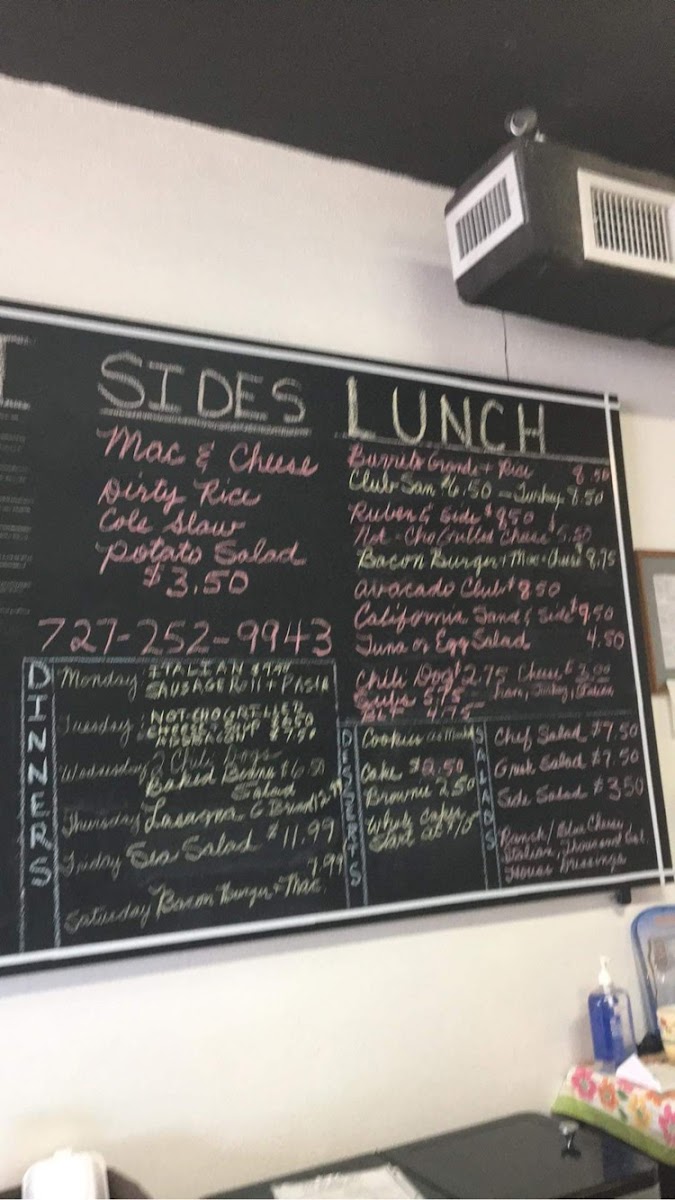 SIDES
Mac & Cheese
Dirty Rice
Cole Slaw
Potato Salad
$3.50
727-252-9943
LUNCH
Burrito Grande + Rice 8.50
Club San $6.50 - Turkey 8.50
Ruben & Side $8.50
Not-Cho Grilled Cheese $5.50
Bacon Burger + Mac-Cheese $8.75
Avocado Club $8.50
California Sand & Side $9.50
Tuna or Egg Salad 4.50
Chili Dog $2.75 Cheese $3.00
5.75 Ham, Turkey, Italian
BLT 4.75
DINNERS
Monday: ITALIAN
SAUSAGE ROLL + PASTA
Tuesday: NOT-CHO GRILLED
CHEESE
$7.50
Wednesday 2 Chili Dogs
Baked Beans $6.50
Salad
Thursday Lasagna G Bread
Friday Sea Salad $11.99
7.99
Saturday Bacon Burger + Mac
DESSERTS
Cookies
Cake $2.50
Brownie 2.50
Whole Cakes
Start at
SALADS
Chef Salad $7.50
Greek Salad $7.50
Side Salad $3.50
Ranch / Blue Cheese,
Italian, Thousand Isl.
House Dressings